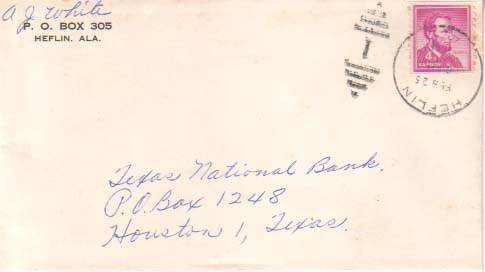 A J White
P. O. BOX 305
HEFLIN, ALA.
1
4¢
HEFLIN
FEB 25
Texas National Bank.
P.O. Box 1248
Houston 1, Texas.